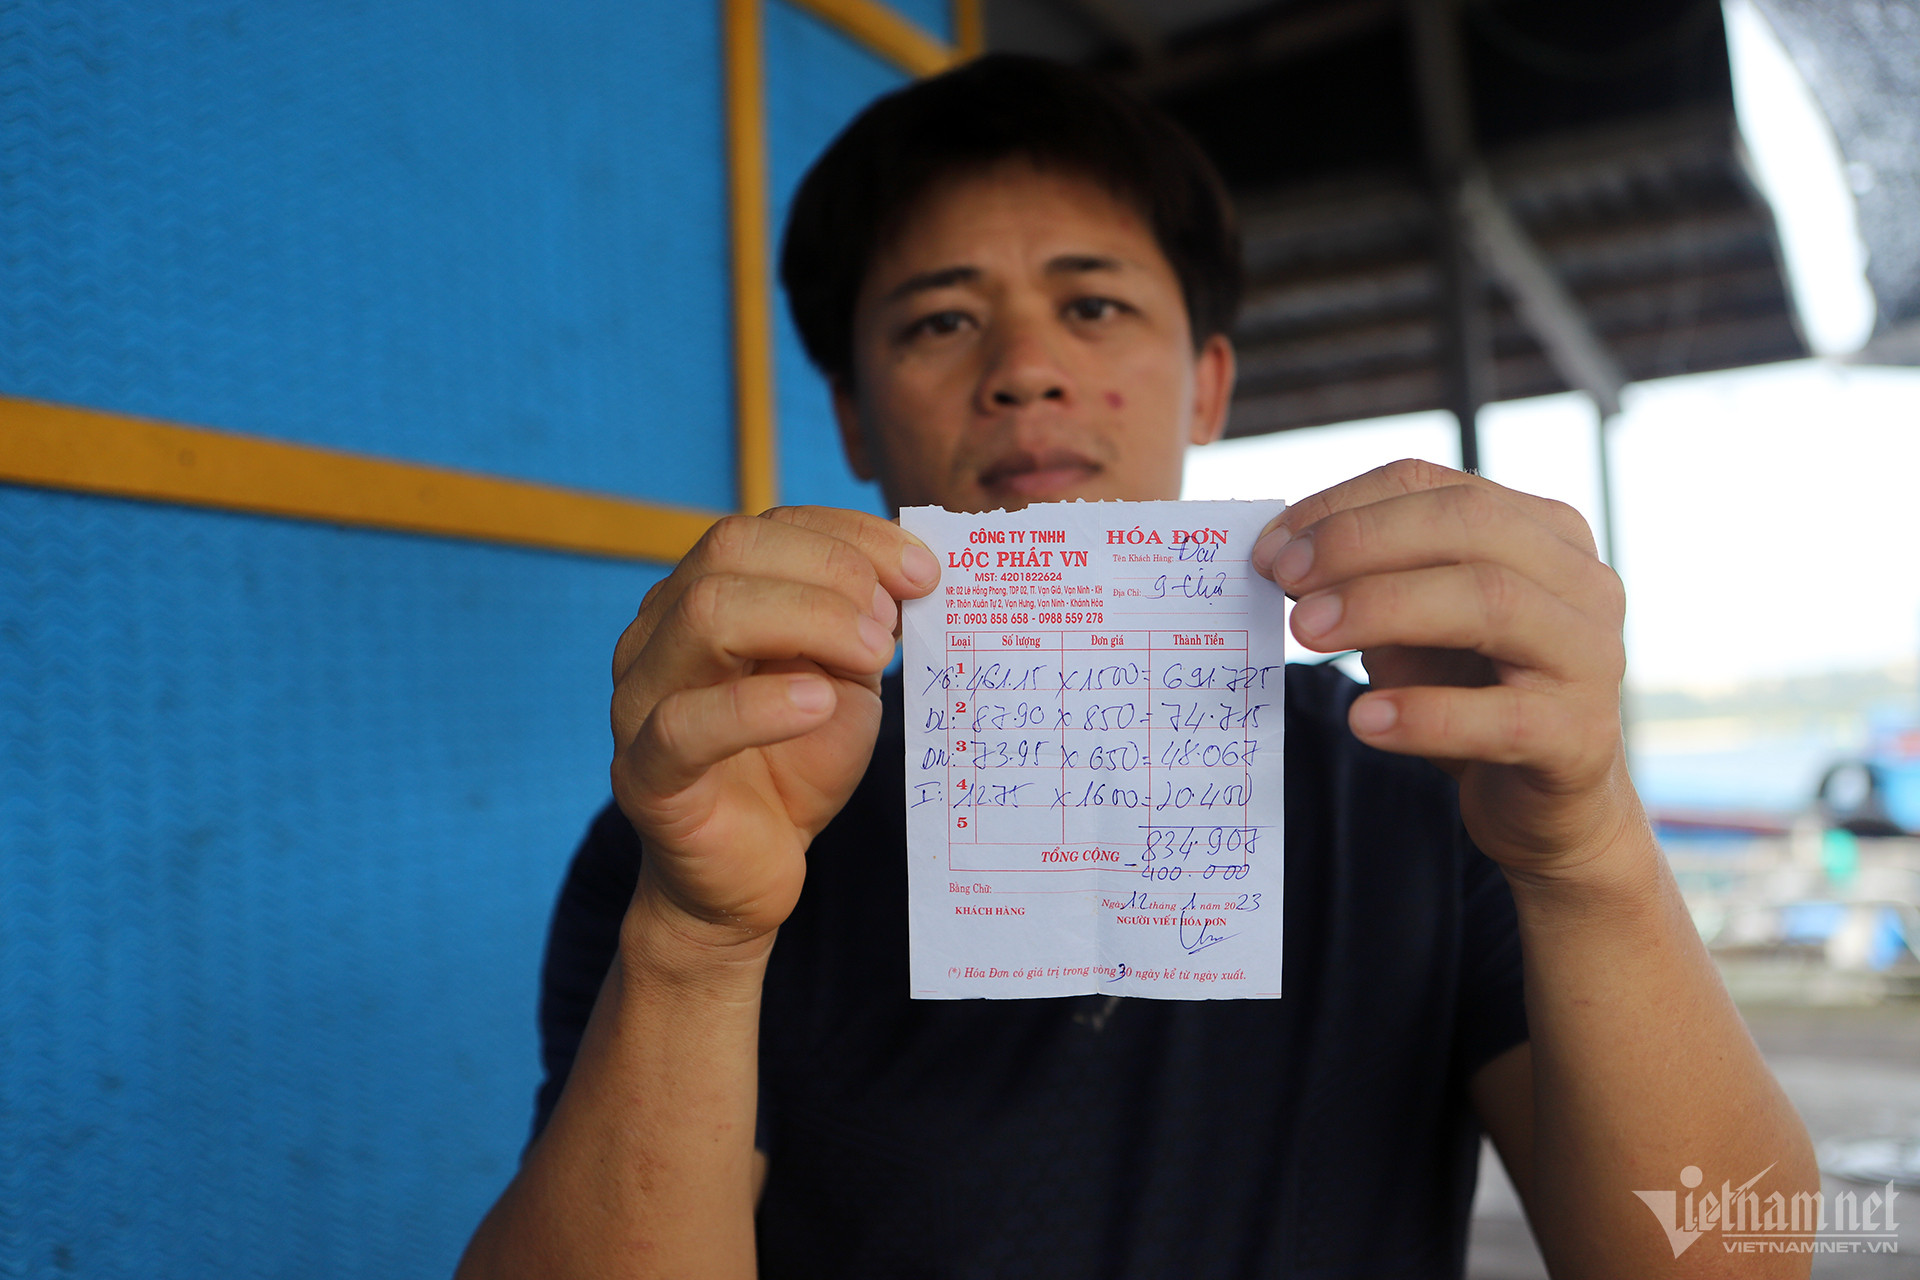 CÔNG TY TNHH
LỘC PHÁT VN
MST: 4201822624
NR: 02 Lê Hồng Phong, TDP 02, TT. Vạn Giã, Vạn Ninh - KH
VP: Thôn Xuân Tự 2, Vạn Hưng, Vạn Ninh - Khánh Hòa
ĐT: 0903 858 658 - 0988 559 278
HÓA ĐƠN
Tên Khách Hàng: Đại
Địa Chỉ:
Loại Số lượng Đơn giá Thành Tiền
1 461.15 x 1500 = 691.725
2 DL: 87.90 x 850 = 74.715
3 DN: 73.95 x 650 = 48.067
4 I: 12.75 x 1600 = 20.400
5
TỔNG CỘNG 834.907
- 400.000
Bằng Chữ:
Ngày 12 tháng 1 năm 2023
KHÁCH HÀNG NGƯỜI VIẾT HÓA ĐƠN
(*) Hóa Đơn có giá trị trong vòng 30 ngày kể từ ngày xuất.
Vietnamnet
VIETNAMNET.VN